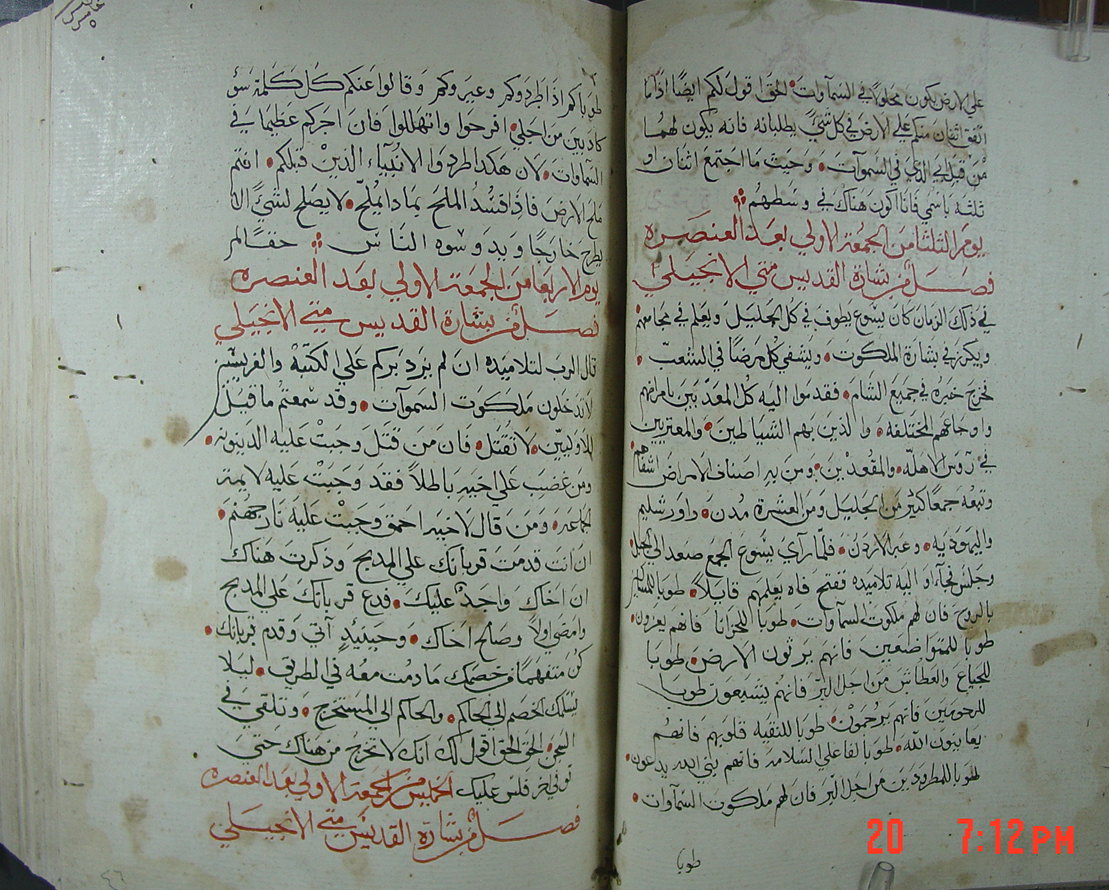 علي الارض يكون محلولاً في السماوات الحق اقول لكم ايضاً اذا ما
اتفق اثنان منكم علي الارض في كل شيً يطلبانه فانه يكون لهما
من قبل ابي الذي في السموات وحيث ما اجتمع اثنان او
ثلثه باسمي فانا اكون هناك في وسطهم
يوم الثلثا من الجمعة الاولي بعد العنصره
فصل من بشارة القديس متي الانجيلي
في ذلك الزمان كان يسوع يطوف في كل الجليل ويعلم في مجامعهم
ويكرز في بشارة الملكوت ويشفي كل مرضاً في الشعب
فخرج خبره في جميع الشام فقدموا اليه كل المعذبين بامراضهم
واوجاعهم المختلفه والذين بهم الشياطين والمعترين
في روس الاهله والمقعدين ومن به اصناف الامراض اشفاهم
وتبعه جمعاً كثير من الجليل ومن العشرة مدن واورشليم
واليهوديه وعبر الاردن فلما رآي يسوع الجمع صعد الي الجبل
وجلس فجآءوا اليه تلاميذه ففتح فاه يعلمهم قايلاً طوبا للمساكين
بالروح فان لهم ملكوت السماوات طوبا للحزانا فانهم يعزون
طوبا للمتواضعين فانهم يرثون الارض طوبا
للجياع والعطاش من اجل البر فانهم يشبعون طوبا
للرحومين فانهم يرحمون طوبا للنقيه قلوبهم فانهم
يعاينون الله طوبا لفاعلي السلامة فانهم بني الله يدعون
طوبا للمطرودين من اجل البر فان لهم ملكوت السماوات
طوبا
طوباكم اذا طردوكم وعيروكم وقالوا عنكم كل كلمة سؤ
كاذبين من اجلي افرحوا وانهللوا فان اجركم عظيماً في
السماوات لان هكذا طردوا الانبياء الذين قبلكم انتم
ملح الارض فاذا فسد الملح بماذا يملح لا يصلح لشيً الا
يطرح خارجاً ويدوسوه الناس حقاً لم
يوم الاربعا من الجمعة الاولي بعد العنصره
فصل من بشارة القديس متي الانجيلي
قال الرب لتلاميذه ان لم يزد بركم علي الكتبة والفريسين
لا تدخلون ملكوت السموات وقد سمعتم ما قيل
للاوليين لا تقتل فان من قتل وجبت عليه الدينونه
ومن غضب علي اخيه باطلاً فقد وجبت عليه لايمة
الجماعه ومن قال لاخيه احمق وجبت عليه نار جهنم
ان انت قدمت قربانك علي المذبح وذكرت هناك
ان اخاك واجدٌ عليك فدع قربانك علي المذبح
وامضي اولاً وصالح اخاك وحينيذٍ آتي وقدم قربانك
كن متفهماً من خصمك ما دمت معه في الطريق ليلا
يسلمك الخصم الي الحاكم والحاكم الي المستخرج وتلقي في
السجن الحق الحق اقول لك انك لا تخرج من هناك حتي
توفي اخر فلس عليك الخميس من الجمعة الاولي بعد العنصره
فصل من بشارة القديس متي الانجيلي
20 7:12 PM